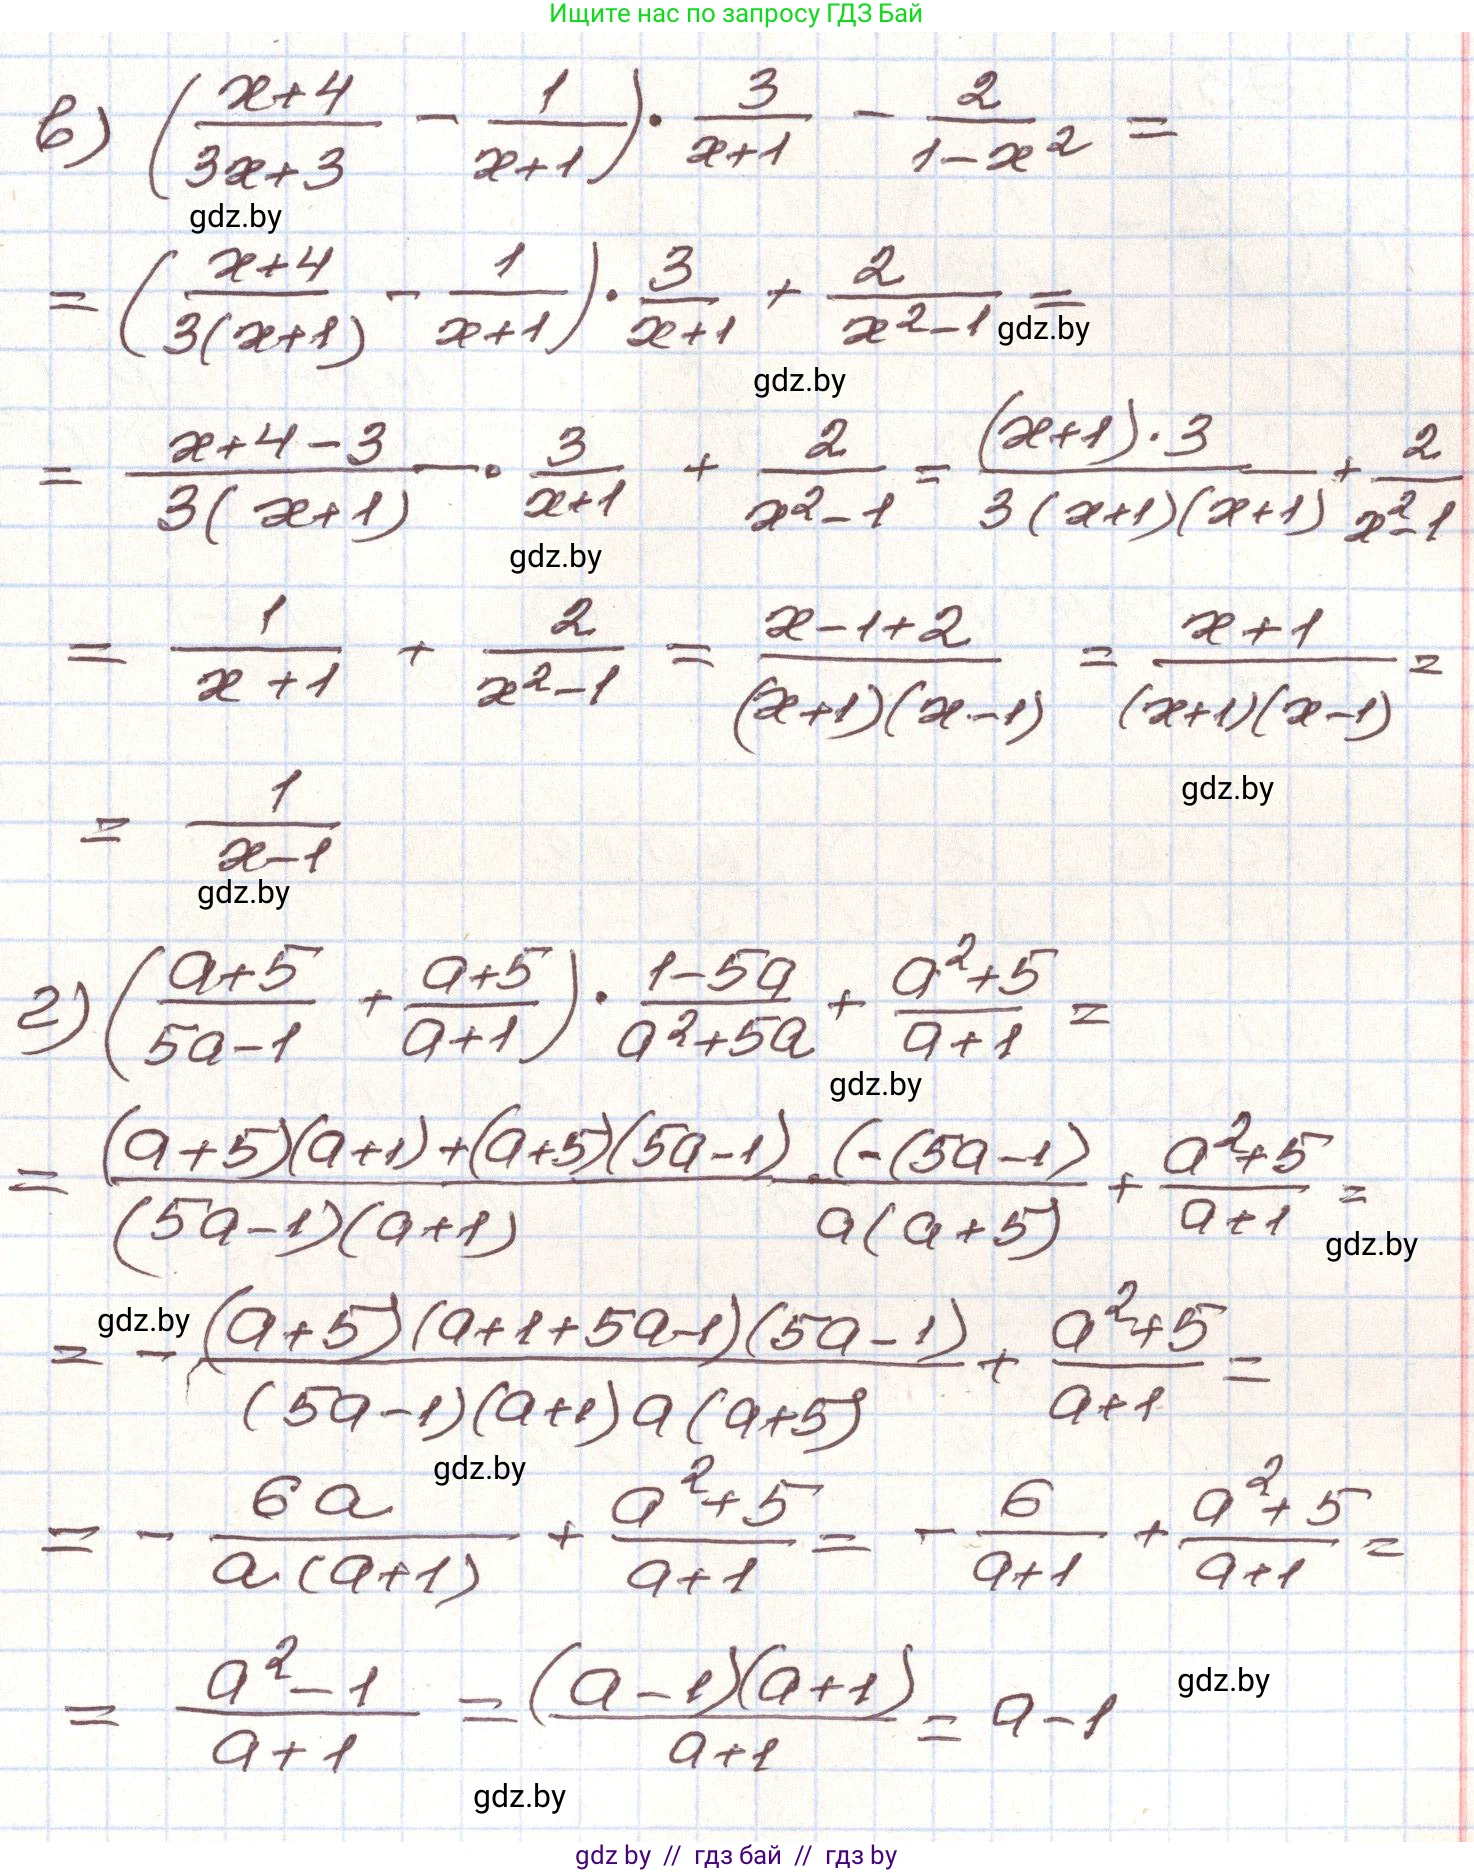 Ищите нас по запросу ГДЗ Бай
в) ((x+4)/(3x+3) - 1/(x+1)) · 3/(x+1) - 2/(1-x²) =
gdz.by
= ((x+4)/(3(x+1)) - 1/(x+1)) · 3/(x+1) + 2/(x²-1) =
gdz.by
gdz.by
= (x+4-3)/(3(x+1)) · 3/(x+1) + 2/(x²-1) = ((x+1)·3)/(3(x+1)(x+1)) + 2/(x²-1)
gdz.by
= 1/(x+1) + 2/(x²-1) = (x-1+2)/((x+1)(x-1)) = (x+1)/((x+1)(x-1)) =
gdz.by
= 1/(x-1)
gdz.by
г) ((a+5)/(5a-1) + (a+5)/(a+1)) · (1-5a)/(a²+5a) + (a²+5)/(a+1) =
gdz.by
= ((a+5)(a+1)+(a+5)(5a-1))/((5a-1)(a+1)) · (-(5a-1)/(a(a+5)) + (a²+5)/(a+1) =
gdz.by
gdz.by
= - ((a+5)(a+1+5a-1)(5a-1))/((5a-1)(a+1)a(a+5)) + (a²+5)/(a+1) =
gdz.by
= - 6a/(a(a+1)) + (a²+5)/(a+1) = - 6/(a+1) + (a²+5)/(a+1) =
= (a²-1)/(a+1) = ((a-1)(a+1))/(a+1) = a-1
gdz.by
gdz.by
gdz by // гдз бай // гдз by